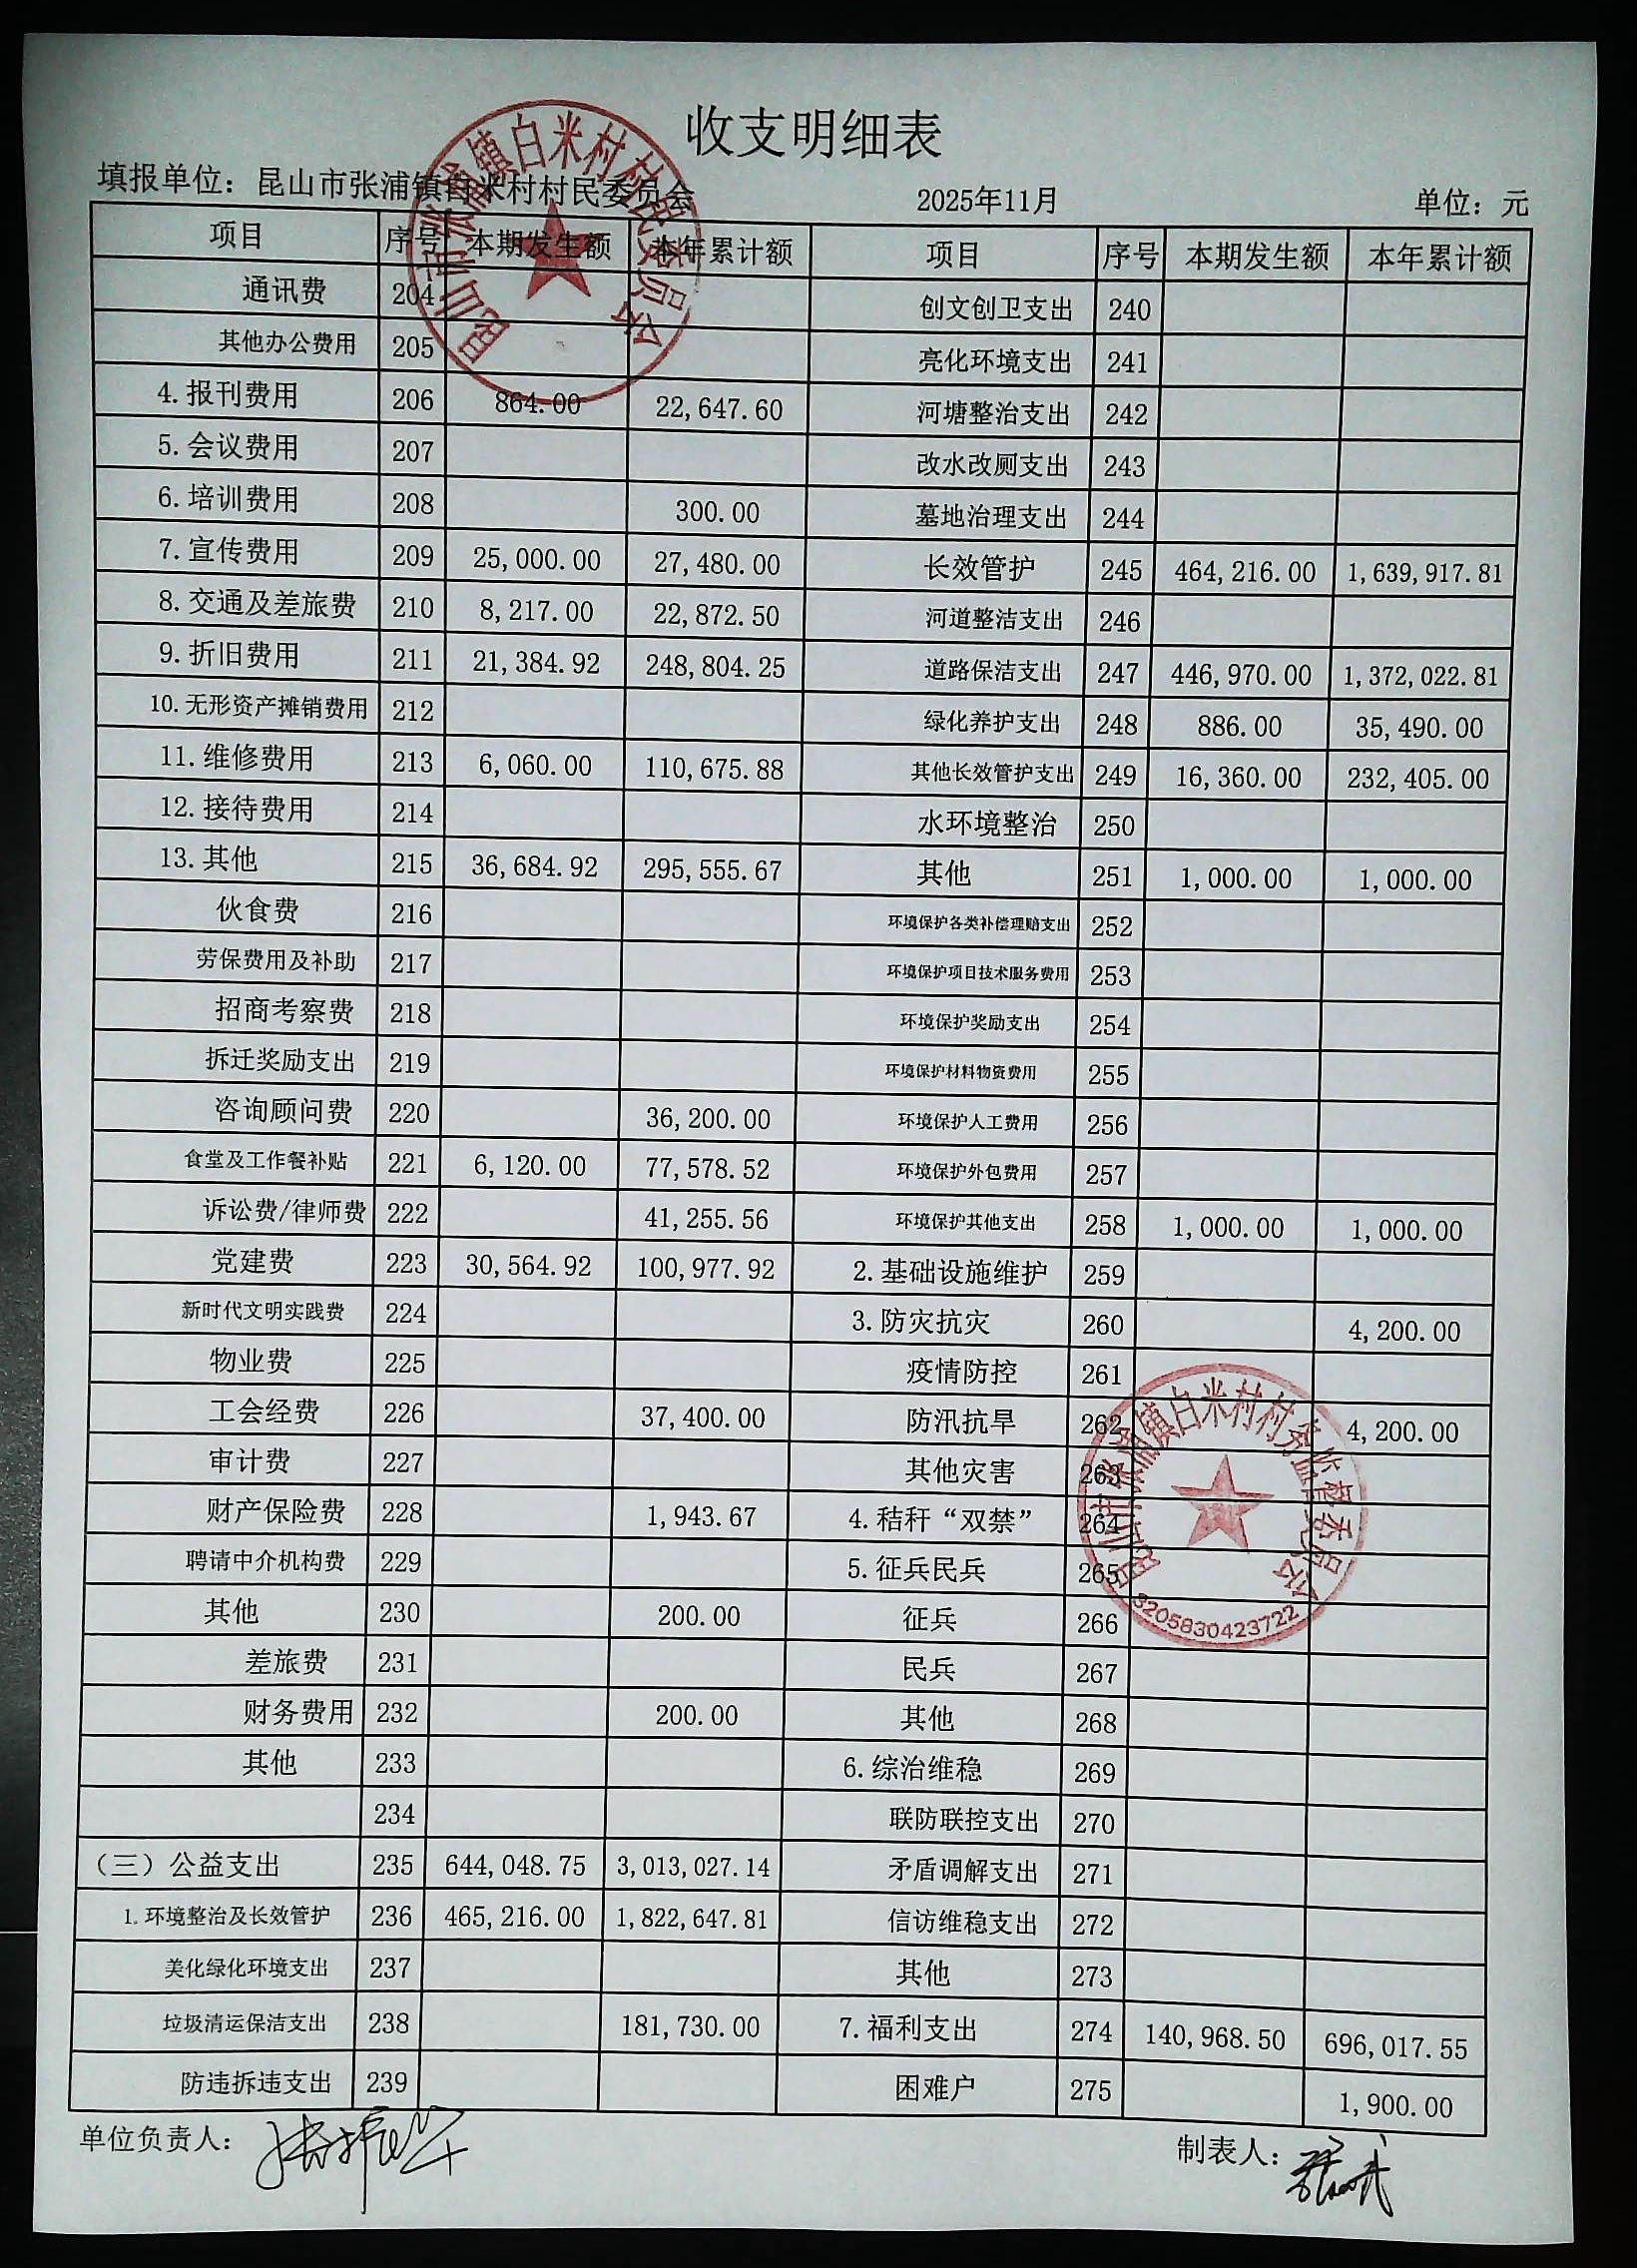 收支明细表
填报单位：昆山市张浦镇白米村村民委员会 2025年11月 单位：元
项目 序号 本期发生额 本年累计额 项目 序号 本期发生额 本年累计额
通讯费 204 创文创卫支出 240
其他办公费用 205 亮化环境支出 241
4.报刊费用 206 864.00 22,647.60 河塘整治支出 242
5.会议费用 207 改水改厕支出 243
6.培训费用 208 300.00 墓地治理支出 244
7.宣传费用 209 25,000.00 27,480.00 长效管护 245 464,216.00 1,639,917.81
8.交通及差旅费 210 8,217.00 22,872.50 河道整洁支出 246
9.折旧费用 211 21,384.92 248,804.25 道路保洁支出 247 446,970.00 1,372,022.81
10.无形资产摊销费用 212 绿化养护支出 248 886.00 35,490.00
11.维修费用 213 6,060.00 110,675.88 其他长效管护支出 249 16,360.00 232,405.00
12.接待费用 214 水环境整治 250
13.其他 215 36,684.92 295,555.67 其他 251 1,000.00 1,000.00
伙食费 216 环境保护各类补偿理赔支出 252
劳保费用及补助 217 环境保护项目技术服务费用 253
招商考察费 218 环境保护奖励支出 254
拆迁奖励支出 219 环境保护材料物资费用 255
咨询顾问费 220 36,200.00 环境保护人工费用 256
食堂及工作餐补贴 221 6,120.00 77,578.52 环境保护外包费用 257
诉讼费/律师费 222 41,255.56 环境保护其他支出 258 1,000.00 1,000.00
党建费 223 30,564.92 100,977.92 2.基础设施维护 259
新时代文明实践费 224 3.防灾抗灾 260 4,200.00
物业费 225 疫情防控 261
工会经费 226 37,400.00 防汛抗旱 262 4,200.00
审计费 227 其他灾害 263
财产保险费 228 1,943.67 4.秸秆“双禁” 264
聘请中介机构费 229 5.征兵民兵 265
其他 230 200.00 征兵 266
差旅费 231 民兵 267
财务费用 232 200.00 其他 268
其他 233 6.综治维稳 269
234 联防联控支出 270
（三）公益支出 235 644,048.75 3,013,027.14 矛盾调解支出 271
1.环境整治及长效管护 236 465,216.00 1,822,647.81 信访维稳支出 272
美化绿化环境支出 237 其他 273
垃圾清运保洁支出 238 181,730.00 7.福利支出 274 140,968.50 696,017.55
防违拆违支出 239 困难户 275 1,900.00
单位负责人： 制表人：
昆山市张浦镇白米村村民委员会
昆山市张浦镇白米村村务监督委员会
3205830423722